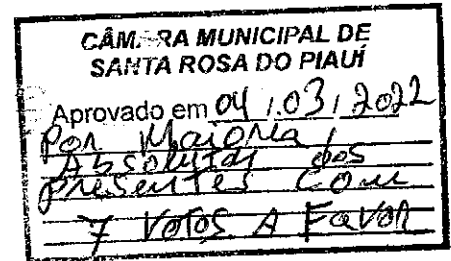 CÂMARA MUNICIPAL DE
SANTA ROSA DO PIAUÍ
Aprovado em 04 / 03 / 2022
Por Maioria
Absoluta dos
presentes com
7 votos A Favor